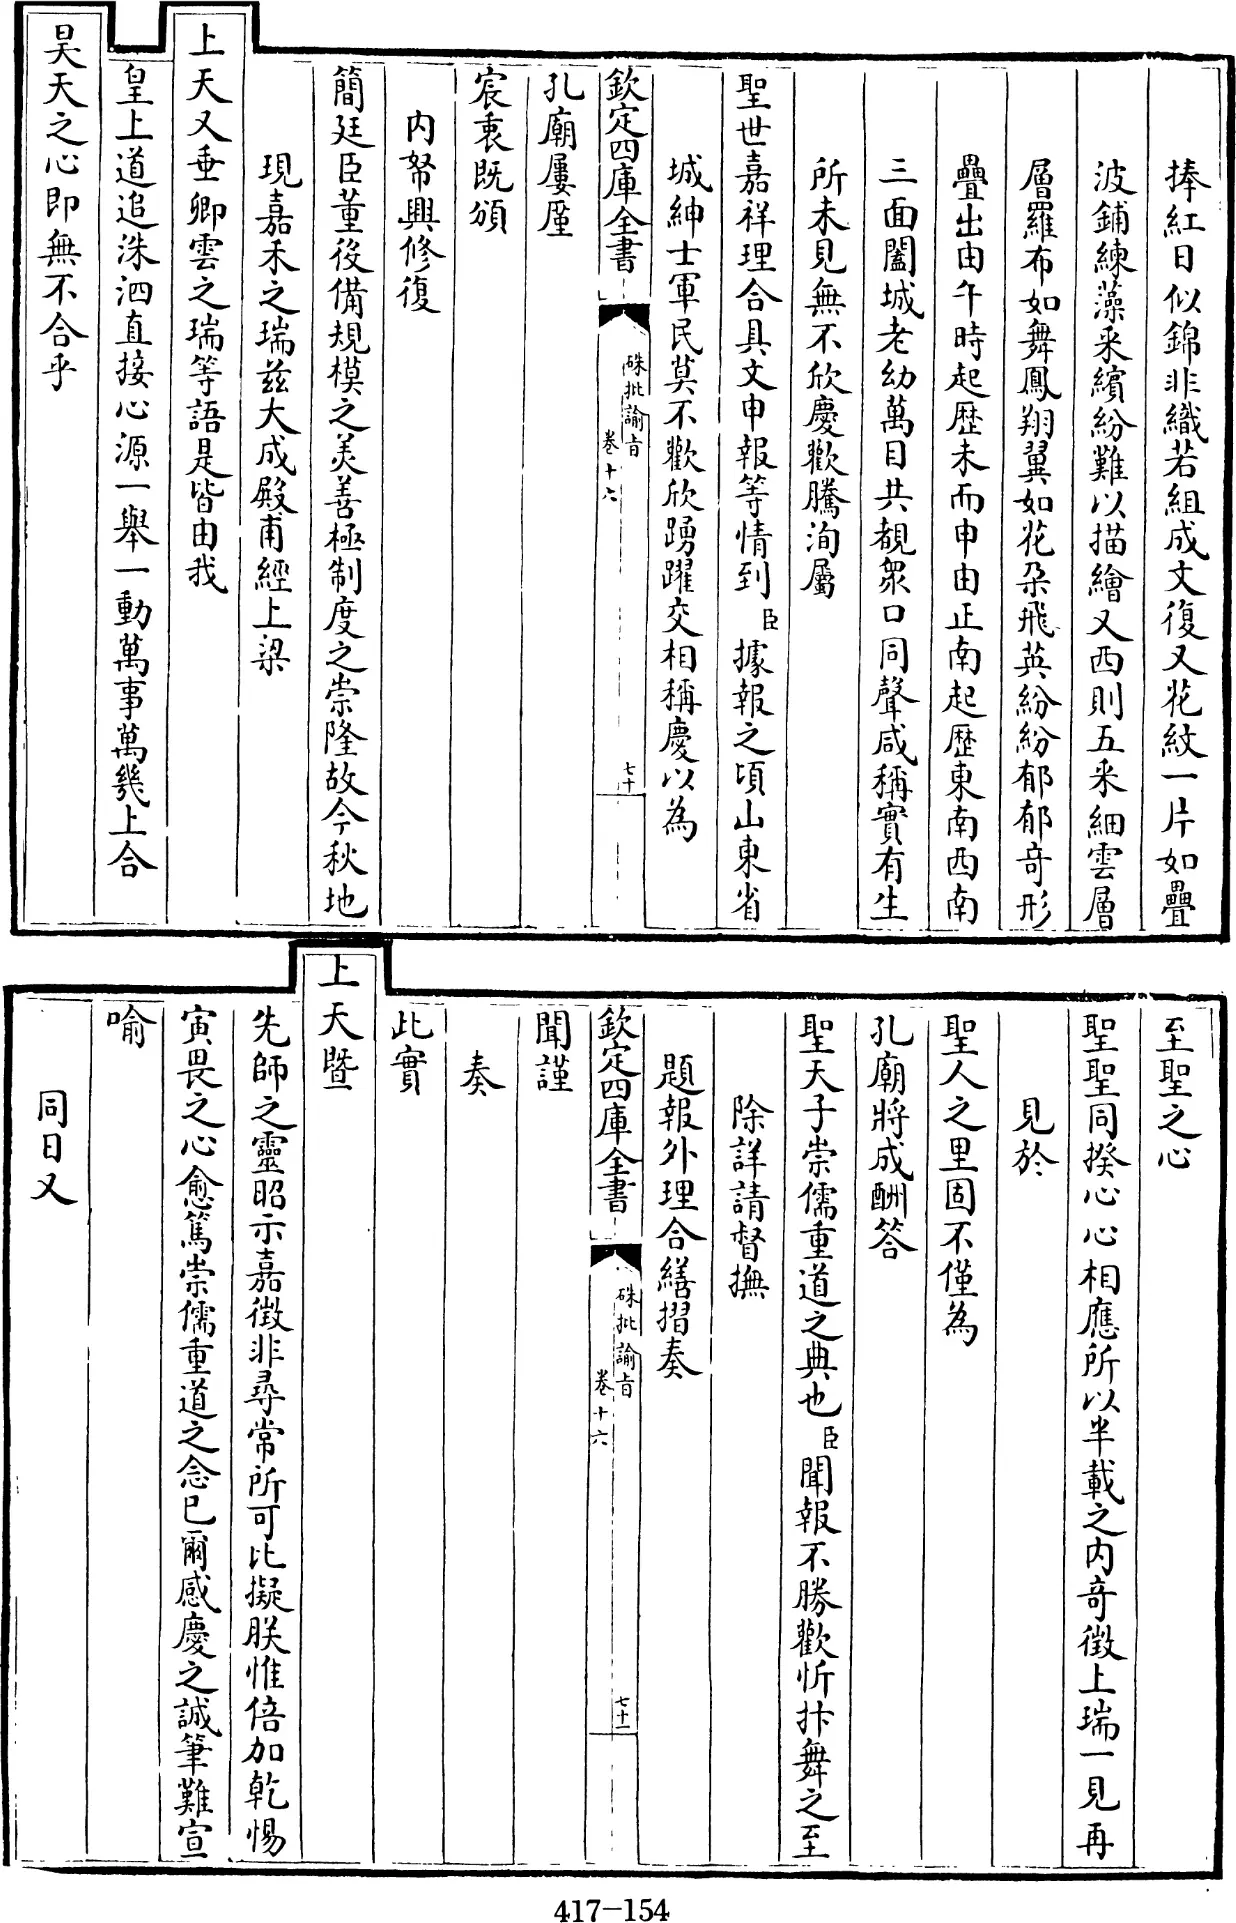 捧紅日似錦非織若組成文復又花紋一片如疊
波鋪練藻采繽紛難以描繪又西則五采細雲層
層羅布如舞鳳翔翼如花朶飛英紛紛郁郁奇形
疊出由午時起歷未而申由正南起歷東南西南
三面闔城老幼萬目共覩衆口同聲咸稱實有生
所未見無不欣慶歡騰洵屬
聖世嘉祥理合具文申報等情到臣據報之頃山東省
城紳士軍民莫不歡欣踴躍交相稱慶以為
欽定四庫全書
硃批諭旨
卷十六
七十
孔廟屢廑
宸衷既頒
内帑興修復
簡廷臣董後備規模之美善極制度之崇隆故今秋地
現嘉禾之瑞茲大成殿甫經上梁
上天又垂卿雲之瑞等語是皆由我
皇上道追洙泗直接心源一舉一動萬事萬幾上合
昊天之心即無不合乎
至聖之心
聖聖同揆心心相應所以半載之内奇徵上瑞一見再
見於
聖人之里固不僅為
孔廟將成酬答
聖天子崇儒重道之典也臣聞報不勝歡忻抃舞之至
除詳請督撫
題報外理合繕摺奏
欽定四庫全書
硃批諭旨
卷十六
七十一
聞謹
奏
此實
上天暨
先師之靈昭示嘉徵非尋常所可比擬朕惟倍加乾惕
寅畏之心愈篤崇儒重道之念已爾感慶之誠筆難宣
喻
同日又
417-154